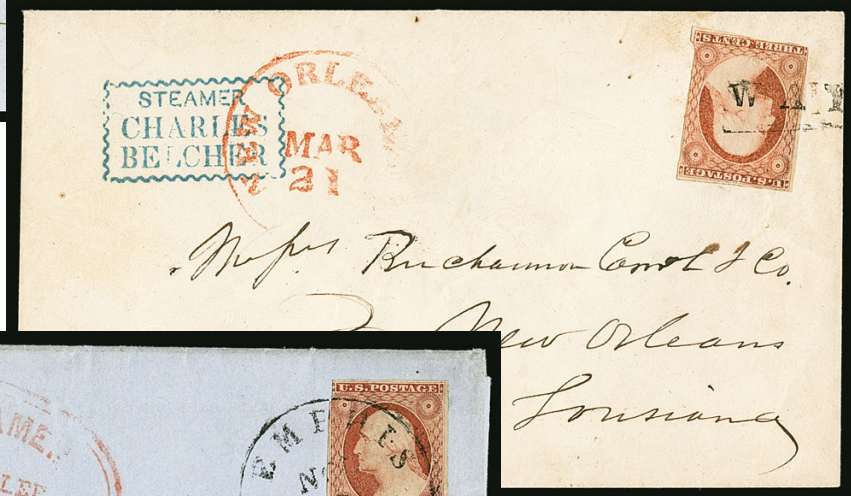 STEAMER
CHARLES
BELCHER
NEW ORLEANS
MAR
21
THREE CENTS
U.S. POSTAGE
WAY
Messrs Buchannon Carrol & Co.
New Orleans
Louisiana
U.S. POSTAGE
MEMPHIS